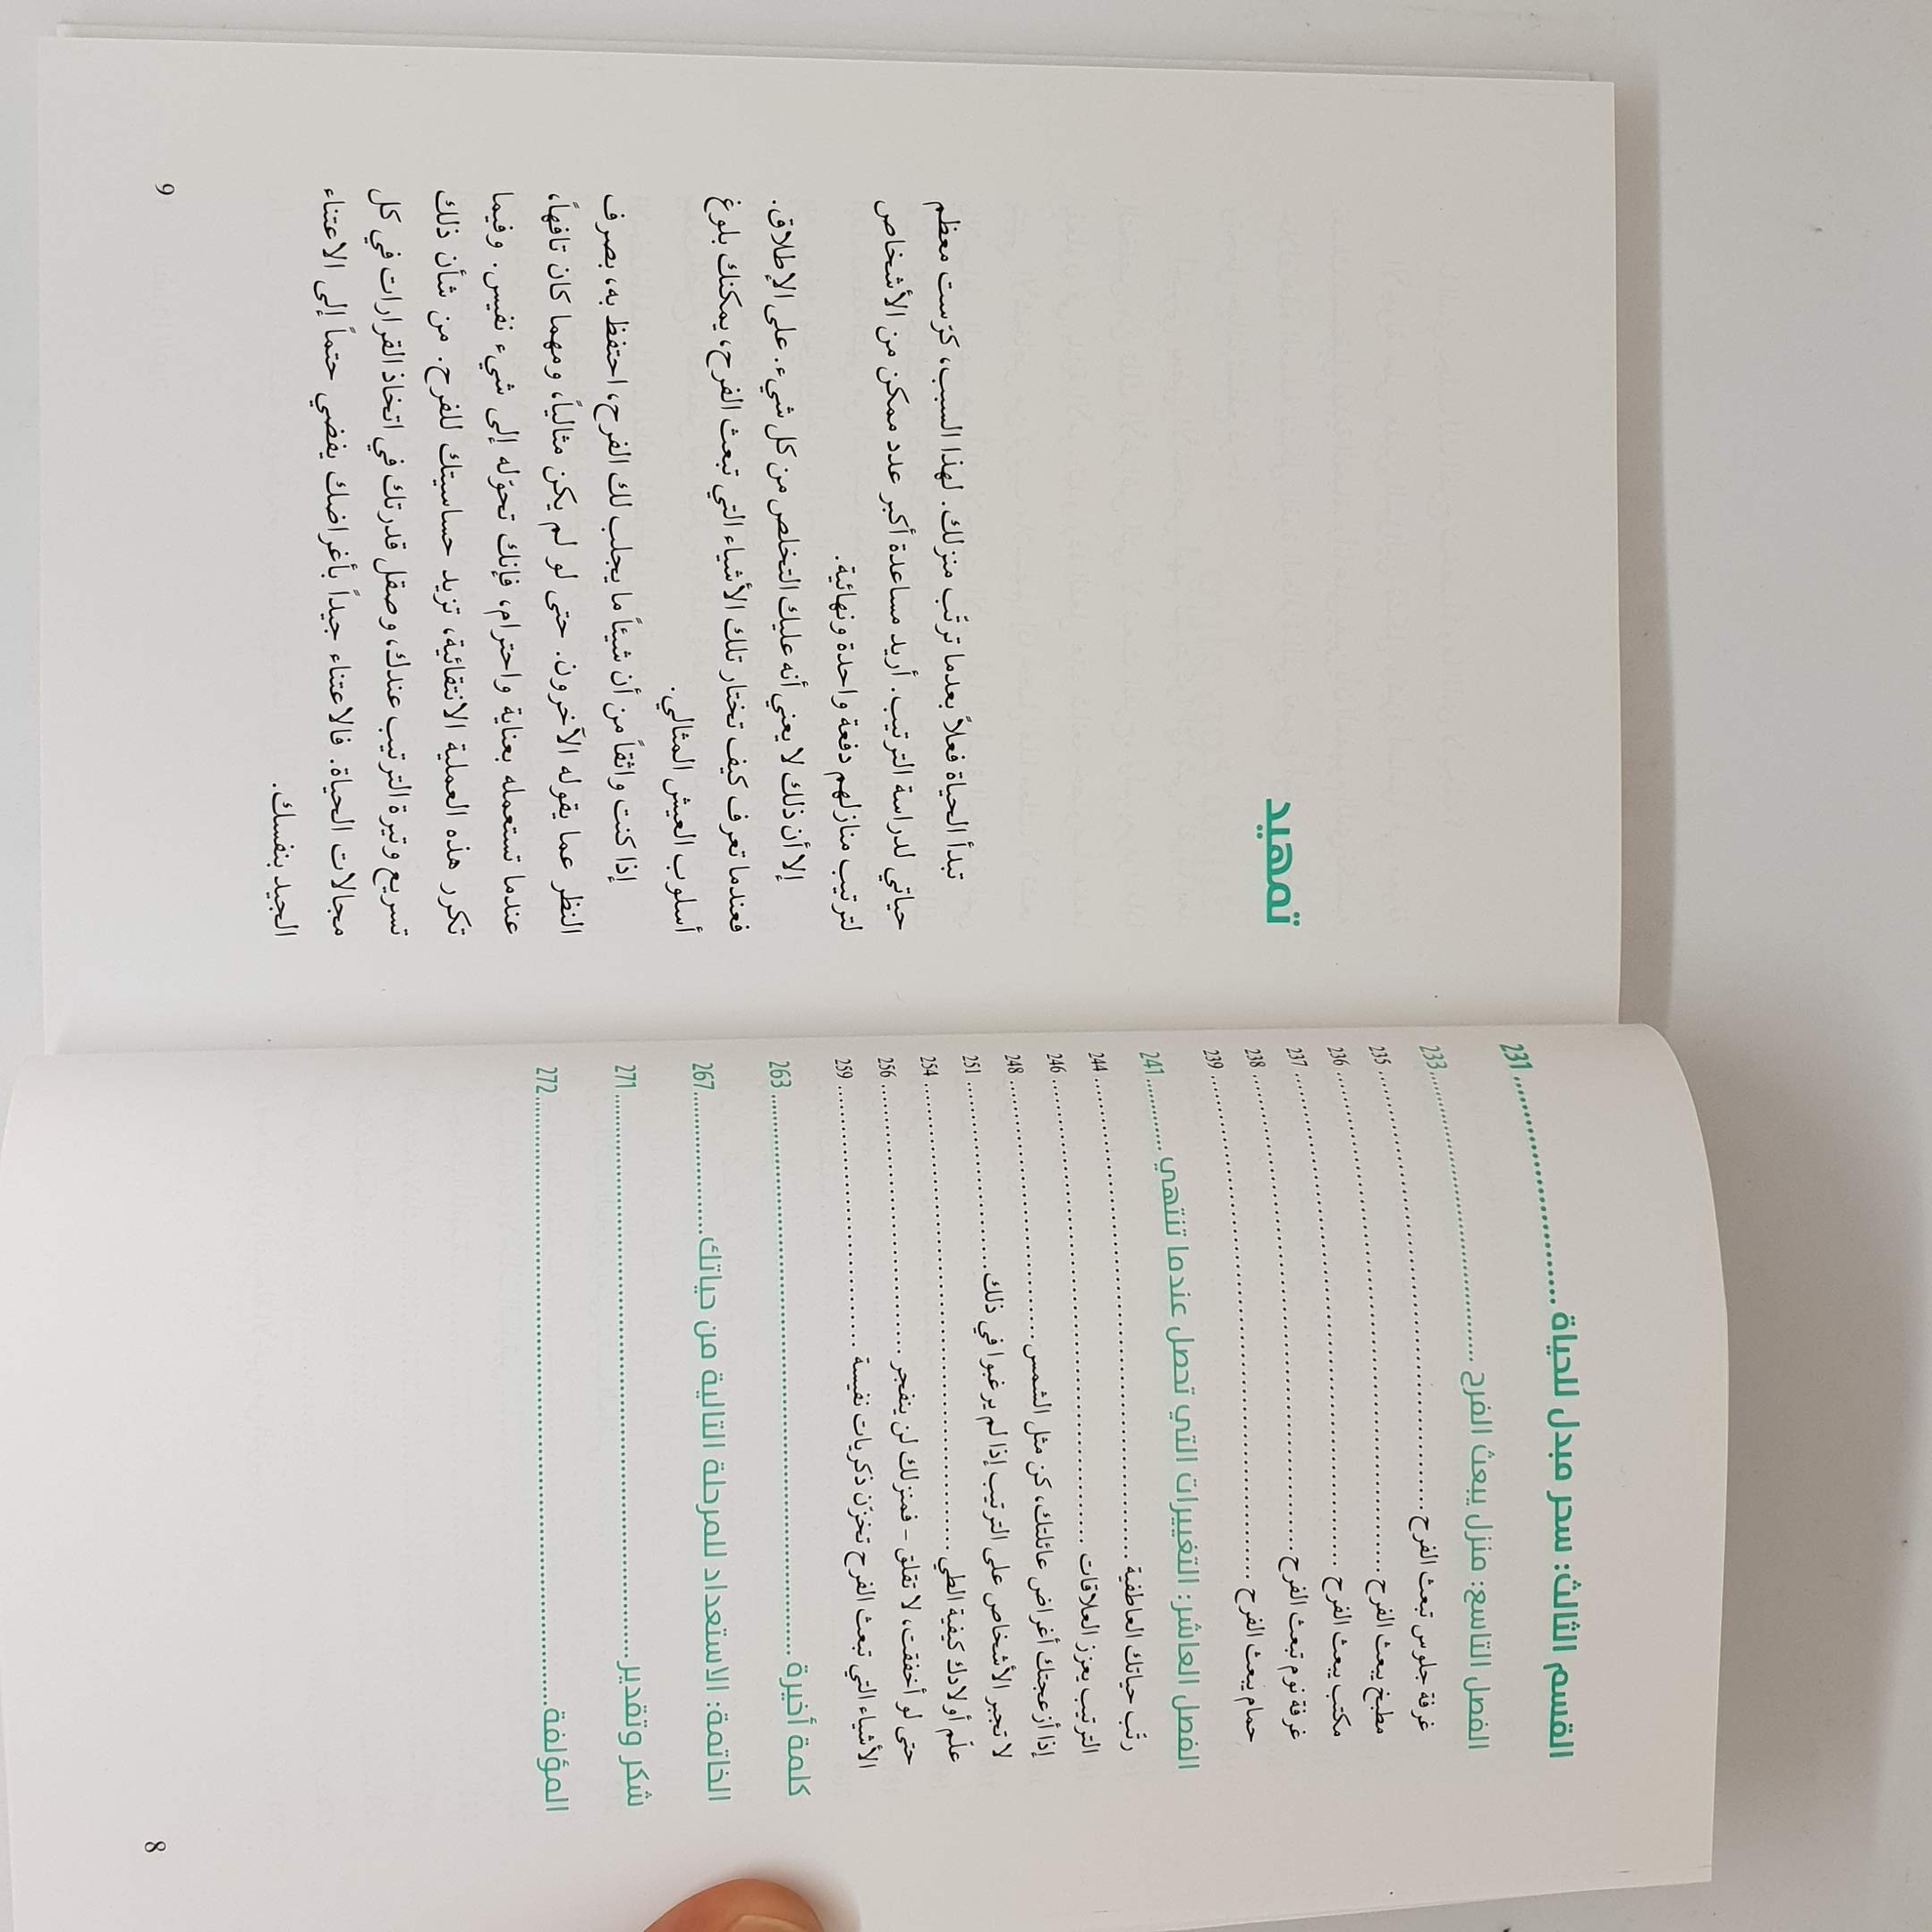 القسم الثالث: سحر مبدل للحياة 231
الفصل التاسع: منزل يبعث الفرح 233
غرفة جلوس تبعث الفرح 235
مطبخ يبعث الفرح 236
مكتب يبعث الفرح 237
غرفة نوم تبعث الفرح 238
حمام يبعث الفرح 239
الفصل العاشر: التغييرات التي تحصل عندما تنتهي 241
رتّب حياتك العاطفية 244
الترتيب يعزز العلاقات 246
إذا أزعجتك أغراض عائلتك، كن مثل الشمس 248
لا تجبر الأشخاص على الترتيب إذا لم يرغبوا في ذلك 251
علّم أولادك كيفية الطي 254
حتى لو أخفقت، لا تقلق – فمنزلك لن ينفجر 256
الأشياء التي تبعث الفرح تخزّن ذكريات نفيسة 259
كلمة أخيرة 263
الخاتمة: الاستعداد للمرحلة التالية من حياتك 267
شكر وتقدير 271
المؤلفة 272
8
تمهيد
تبدأ الحياة فعلاً بعدما ترتّب منزلك. لهذا السبب، كرّست معظم
حياتي لدراسة الترتيب. أريد مساعدة أكبر عدد ممكن من الأشخاص
لترتيب منازلهم دفعة واحدة ونهائية.
إلا أن ذلك لا يعني أنه عليك التخلص من كل شيء. على الإطلاق.
فعندما تعرف كيف تختار تلك الأشياء التي تبعث الفرح، يمكنك بلوغ
أسلوب العيش المثالي.
إذا كنت واثقاً من أن شيئاً ما يجلب لك الفرح، احتفظ به، بصرف
النظر عما يقوله الآخرون. حتى لو لم يكن مثالياً، ومهما كان تافهاً،
عندما تستعمله بعناية واحترام، فإنك تحوّله إلى شيء نفيس. وفيما
تكرر هذه العملية الانتقائية، تزيد حساسيتك للفرح. من شأن ذلك
تسريع وتيرة الترتيب عندك، وصقل قدرتك في اتخاذ القرارات في كل
مجالات الحياة. فالاعتناء جيداً بأغراضك يفضي حتماً إلى الاعتناء
الجيد بنفسك.
9